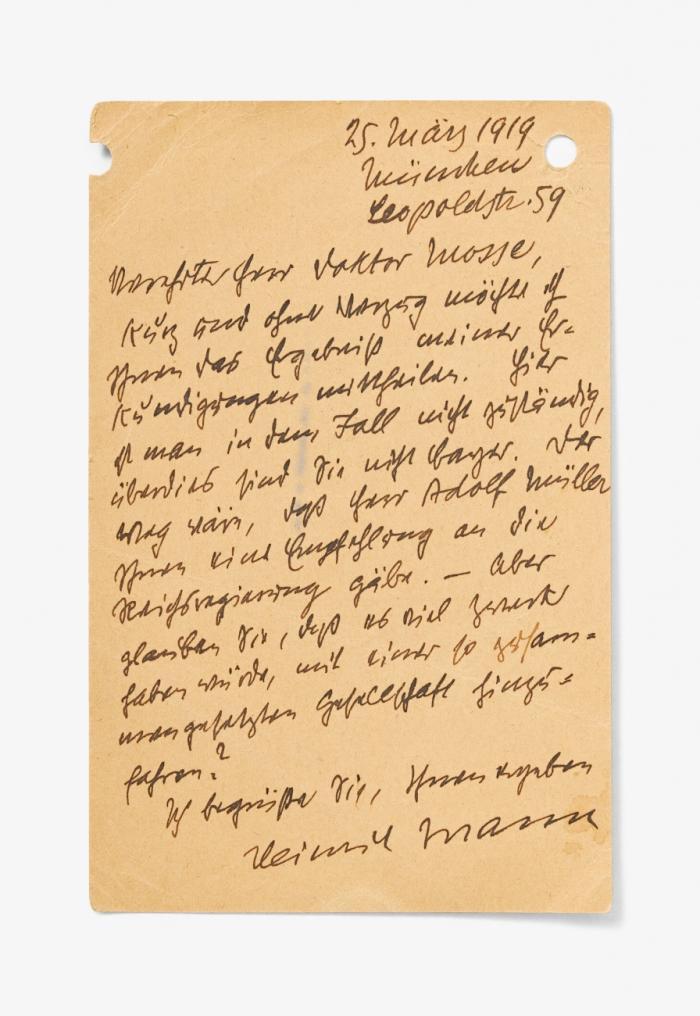 25. März 1919
München
Leopoldstr. 59
Verehrter Herr Doktor Mosse,
kurz und ohne Verzug möchte ich
Ihnen das Ergebniß meiner Er-
kundigungen mittheilen. Hier
ist man in dem Fall nicht zuständig,
überdies sind Sie nicht Bayer. Der
Weg wäre, daß Herr Adolf Müller
Ihnen eine Empfehlung an die
Reichsregierung gäbe. — Aber
glauben Sie, daß es viel Zweck
haben würde, mit einer so zusam-
mengesetzten Gesellschaft hinzu-
fahren?
Ich begrüße Sie, Ihnen ergeben
Heinrich Mann